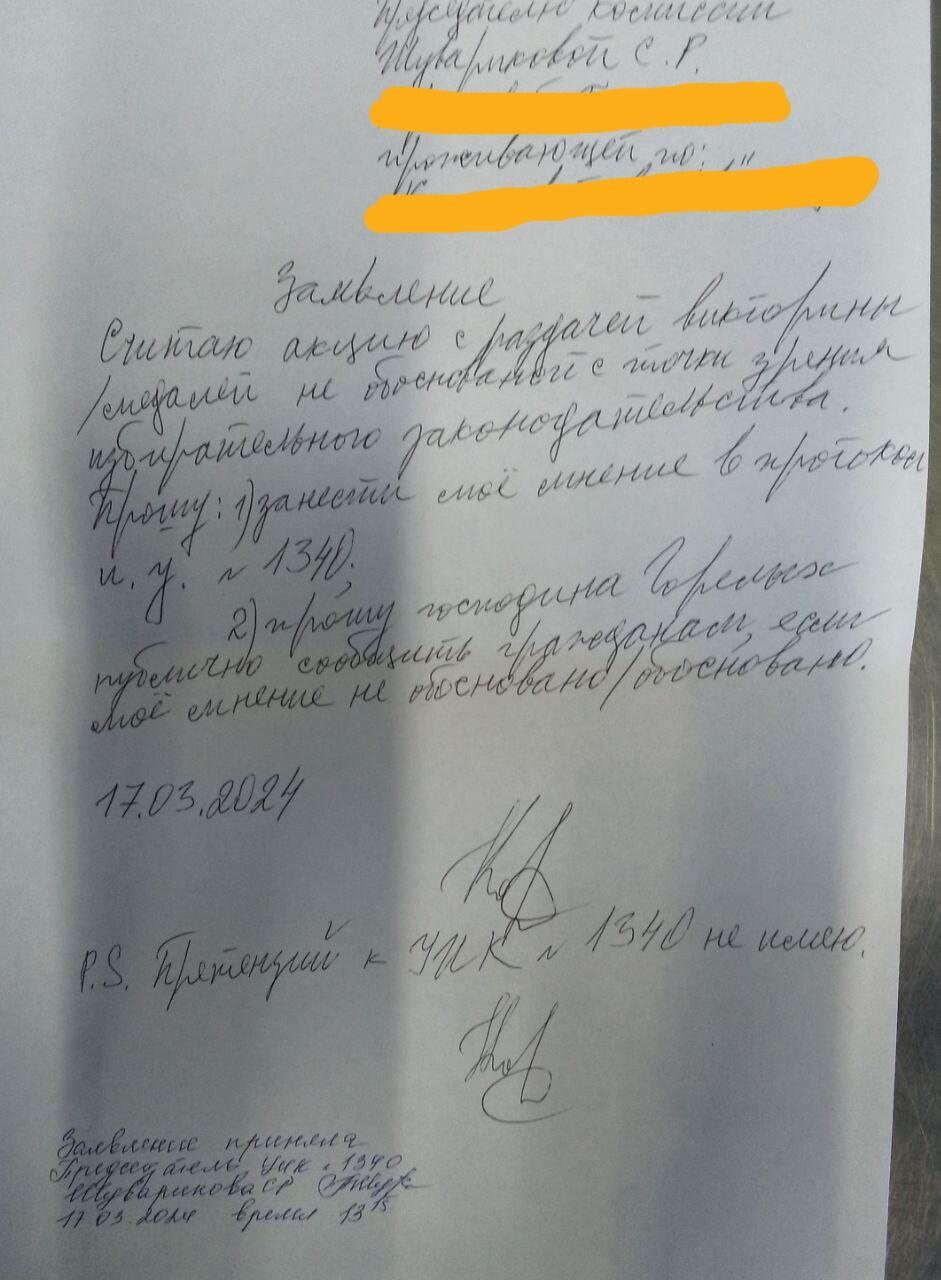 Председателю комиссии
Шувариковой С.Р.
проживающей по:
Заявление
Считаю акцию с раздачей викторины
/медалей не обоснованой с точки зрения
избирательного законодательства.
Прошу: 1) занести моё мнение в протокол
и.у. № 1340;
2) прошу господина Горелых
публично сообщить гражданам, если
моё мнение не обосновано/обосновано.
17.03.2024
P.S. Претензий к УИК № 1340 не имею.
Заявление приняла
Председатель УИК № 1340
Шуварикова СР
17 03. 2024 время 13 15